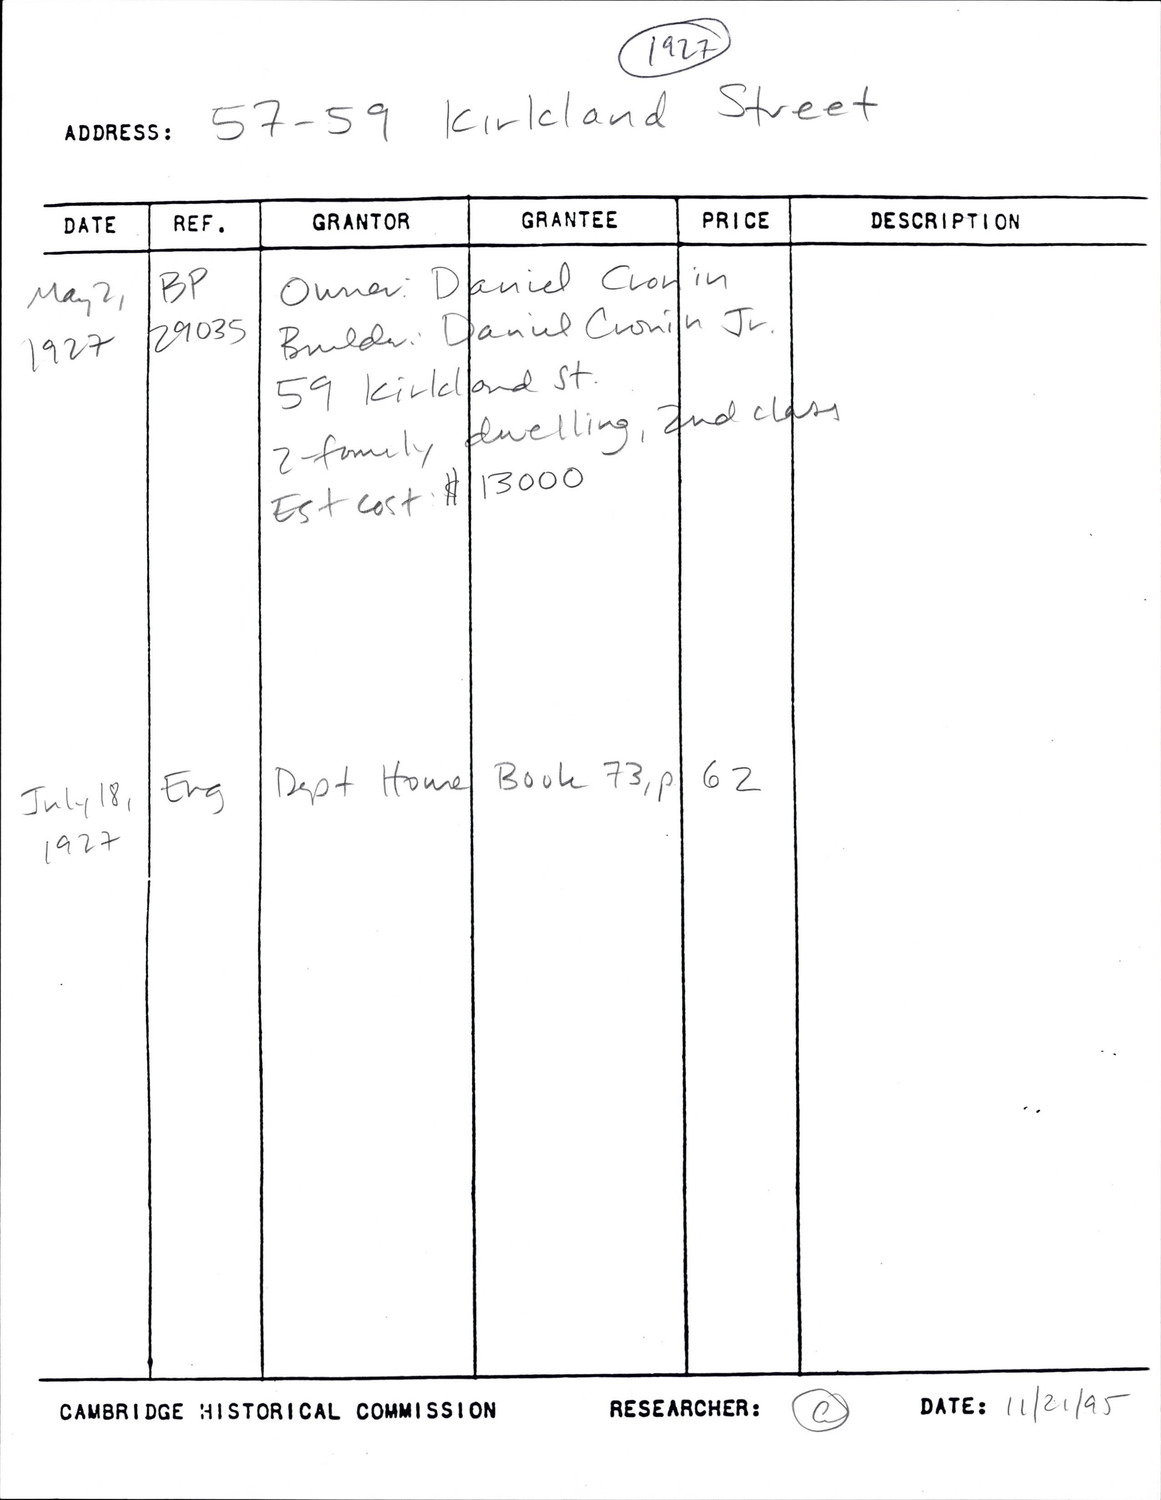 1927
ADDRESS: 57-59 Kirkland Street
DATE REF. GRANTOR GRANTEE PRICE DESCRIPTION
May 2, BP Owner: Daniel Cronin
1927 29035 Builder: Daniel Cronin Jr.
59 Kirkland St.
2-family dwelling, 2nd class
Est cost: $ 13000
July 18, Eng Dept House Book 73, p 62
1927
CAMBRIDGE HISTORICAL COMMISSION RESEARCHER: DATE: 11/21/95